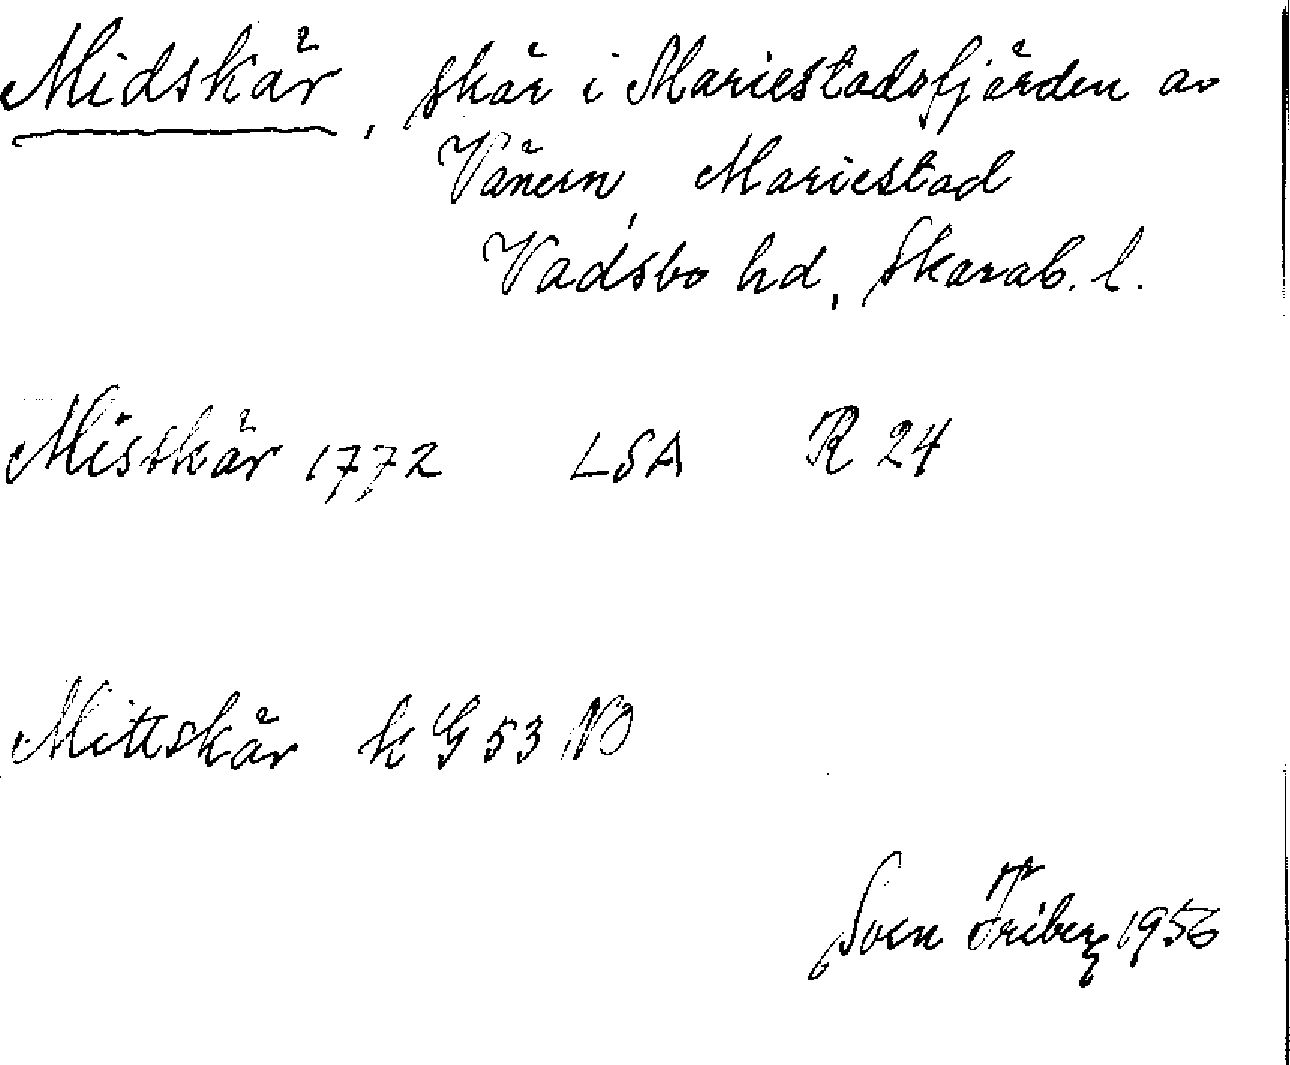 Midskär, skär i Mariestadsfjärden av
Vänern, Mariestad
Vadsbo hd, Skarab. l.
Misskär 1772 LSA R 24
Mittskär k G 53 NO
Sven Friberg 1956